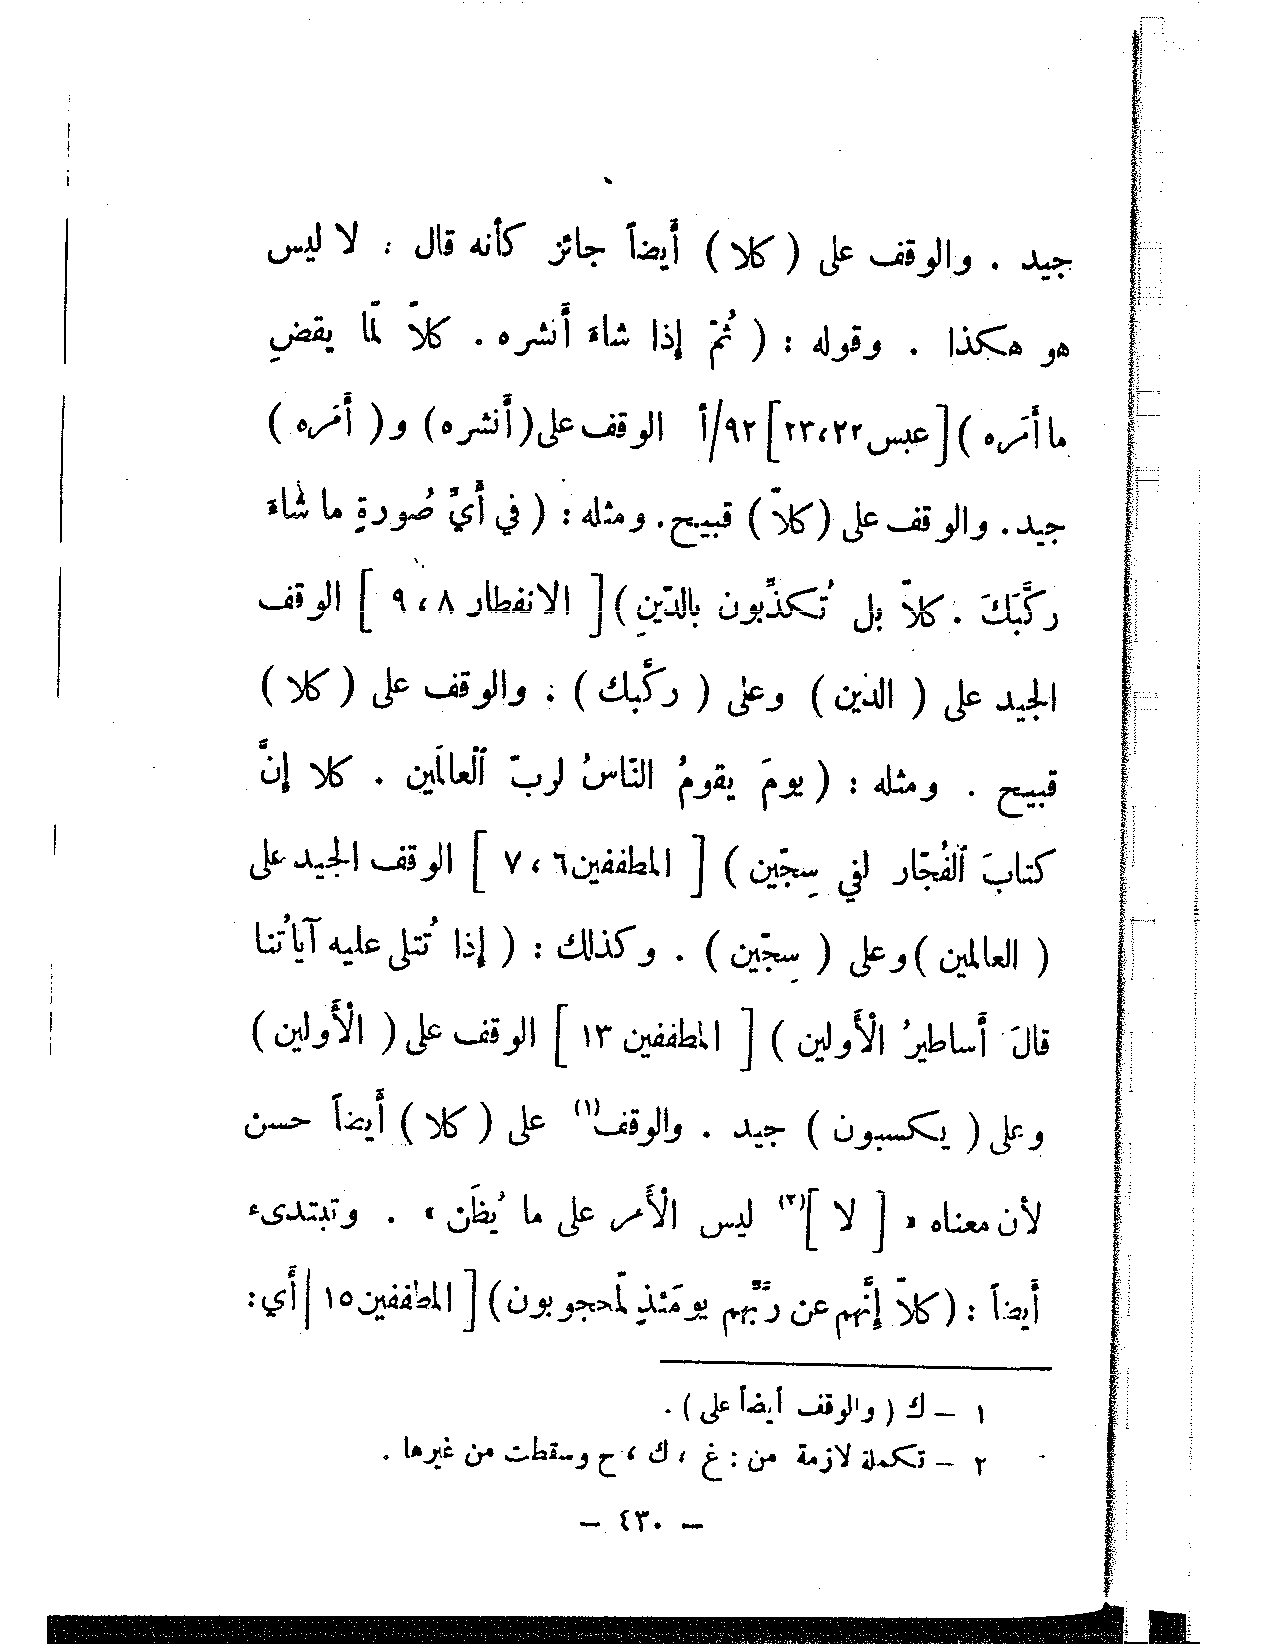 جيد . والوقف على ( كلا ) أيضاً جائز كأنه قال : لا ليس
هو هكذا . وقوله : ( ثُمّ إذا شاءَ أنشره . كلاّ لمّا يقضِ
ما أمَره ) [عبس ٢٢،٢٣] ٩٢/أ الوقف على (أنشره) و( أمَره )
جيد . والوقف على (كلاّ) قبيح . ومثله : ( في أيِّ صُورةٍ ما شاءَ
ركَّبَكَ . كلاّ بل تُكذِّبون بالدّينِ ) [ الانفطار ٨ ، ٩ ] الوقف
الجيد على ( الدين ) وعلى ( ركَّبك ) . والوقف على ( كلا )
قبيح . ومثله : ( يومَ يقومُ النّاسُ لربّ ٱلعالمَين . كلا إنَّ
كتابَ ٱلفُجّار لفي سِجّين ) [ المطففين ٦ ، ٧ ] الوقف الجيد على
( العالمين ) وعلى ( سِجّين ) . وكذلك : ( إذا تُتلى عليه آياتُنا
قالَ أساطيرُ الْأَولين ) [ المطففين ١٣ ] الوقف على ( الْأَولين )
وعلى ( يكسبون ) جيد . والوقف(١) على ( كلا ) أيضاً حسن
لأن معناه « [ لا ](٢) ليس الْأَمر على ما يُظَن » . وتبتدىء
أيضاً : (كلاّ إنَّهم عن ربِّهم يومَئذٍ لَّمحجوبون) [ المطففين ١٥] أي :
١ – ك ( والوقف أيضاً على ) .
٢ – تكملة لازمة من : غ ، ك ، ح وسقطت من غيرها .
– ٤٣٠ –